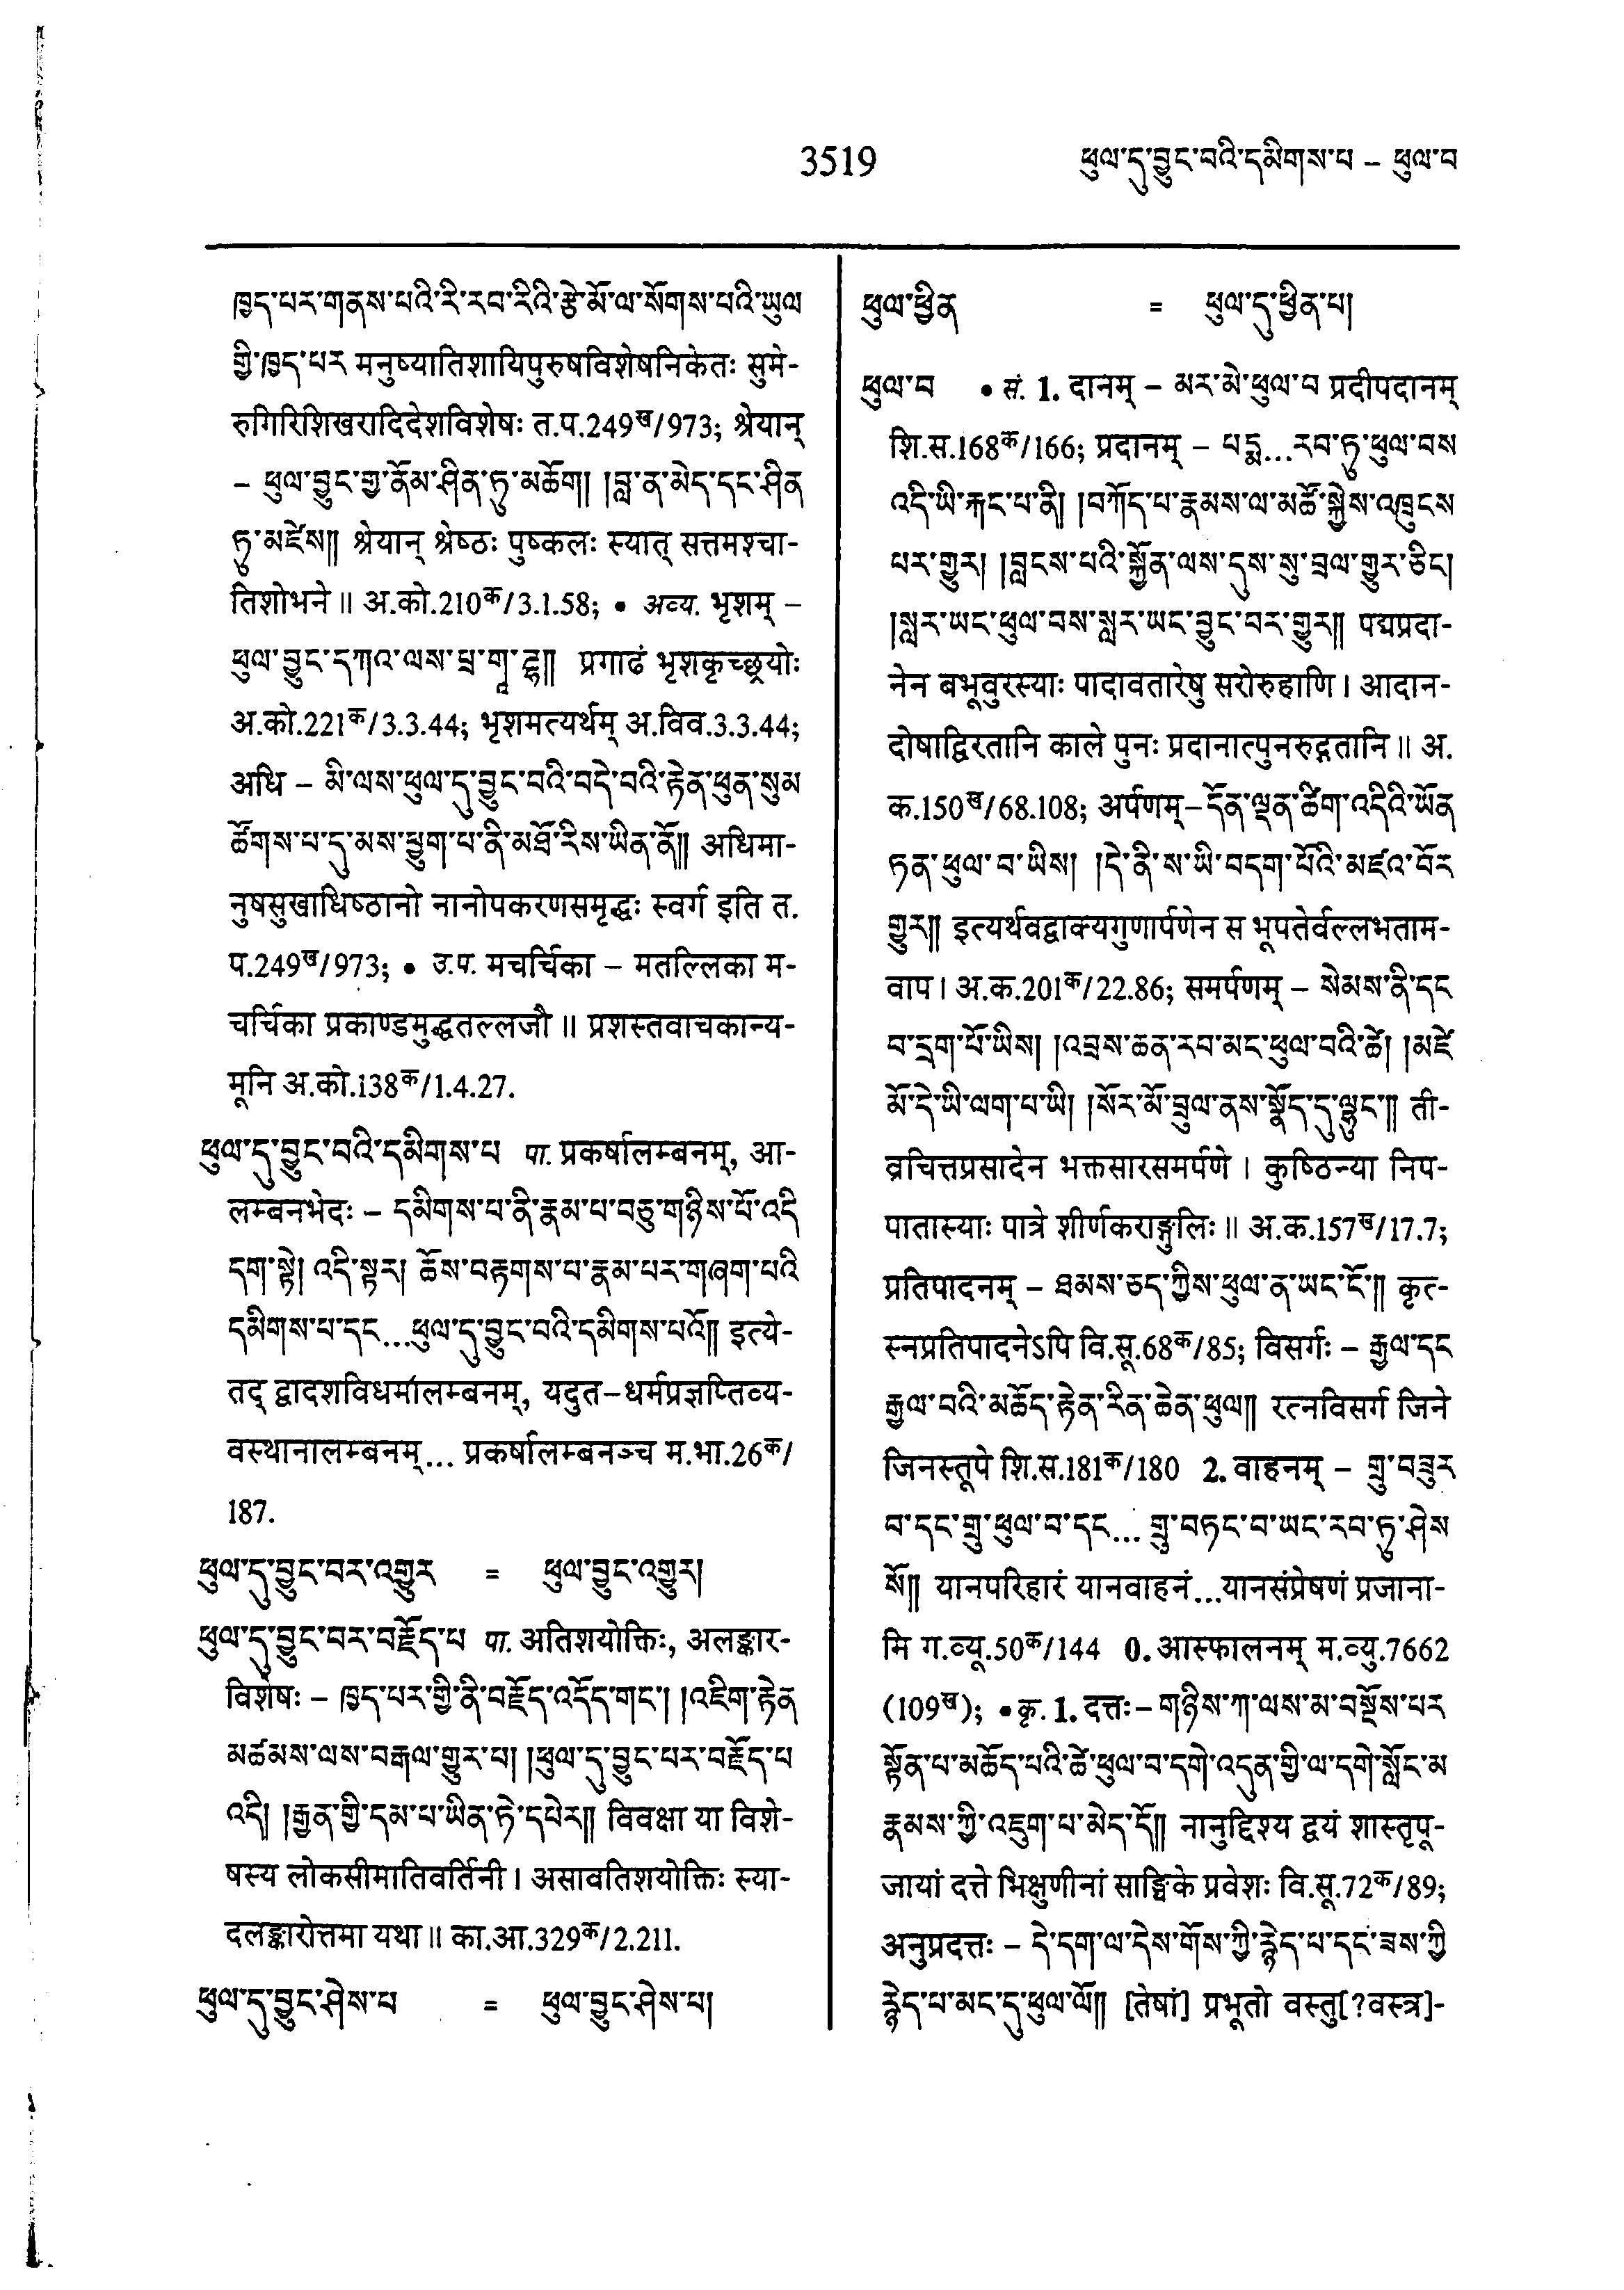 3519
ཕུལ་དུ་བྱུང་བའི་དམིགས་པ – ཕུལ་བ
ཁྱད་པར་གནས་པའི་རི་རབ་རིའི་རྩེ་མོ་ལ་སོགས་པའི་ཡུལ
གྱི་ཁྱད་པར मनुष्यातिशायिपुरुषविशेषनिकेतः सुमे-
रुगिरिशिखरादिदेशविशेषः त.प.249ख/973; श्रेयान्
– ཕུལ་བྱུང་གྱ་ནོམ་ཤིན་ཏུ་མཆོག། །བླ་ན་མེད་དང་ཤིན
ཏུ་མཛེས།། श्रेयान् श्रेष्ठः पुष्कलः स्यात् सत्तमश्चा-
तिशोभने ॥ अ.को.210क/3.1.58; • अव्य. भृशम् –
ཕུལ་བྱུང་དཀའ་ལས་པྲ་གཱ་ཌྷ།། प्रगाढं भृशकृच्छ्रयोः
अ.को.221क/3.3.44; भृशमत्यर्थम् अ.विव.3.3.44;
अधि – མི་ལས་ཕུལ་དུ་བྱུང་བའི་བདེ་བའི་རྟེན་ཕུན་སུམ
ཚོགས་པ་དུ་མས་ཕྱུག་པ་ནི་མཐོ་རིས་ཡིན་ནོ།། अधिमा-
नुषसुखाधिष्ठानो नानोपकरणसमृद्धः स्वर्ग इति त.
प.249ख/973; • उ.प. मचर्चिका – मतल्लिका म-
चर्चिका प्रकाण्डमुद्धतल्लजौ ॥ प्रशस्तवाचकान्य-
मूनि अ.को.138क/1.4.27.
ཕུལ་དུ་བྱུང་བའི་དམིགས་པ पा. प्रकर्षालम्बनम्, आ-
लम्बनभेदः – དམིགས་པ་ནི་རྣམ་པ་བཅུ་གཉིས་པོ་འདི
དག་སྟེ། འདི་སྟར། ཆོས་བརྟགས་པ་རྣམ་པར་གཞག་པའི
དམིགས་པ་དང...ཕུལ་དུ་བྱུང་བའི་དམིགས་པའོ།། इत्ये-
तद् द्वादशविधर्मालम्बनम्, यदुत–धर्मप्रज्ञप्तिव्य-
वस्थानालम्बनम्... प्रकर्षालम्बनञ्च म.भा.26क/
187.
ཕུལ་དུ་བྱུང་བར་འགྱུར = ཕུལ་བྱུང་འགྱུར།
ཕུལ་དུ་བྱུང་བར་བརྗོད་པ पा. अतिशयोक्तिः, अलङ्कार-
विशेषः – ཁྱད་པར་གྱི་ནི་བརྗོད་འདོད་གང་། །འཇིག་རྟེན
མཚམས་ལས་བརྒལ་གྱུར་པ། །ཕུལ་དུ་བྱུང་པར་བརྗོད་པ
འདི། །རྒྱན་གྱི་དམ་པ་ཡིན་ཏེ་དཔེར།། विवक्षा या विशे-
षस्य लोकसीमातिवर्तिनी । असावतिशयोक्तिः स्या-
दलङ्कारोत्तमा यथा ॥ का.आ.329क/2.211.
ཕུལ་དུ་བྱུང་ཤེས་པ = ཕུལ་བྱུང་ཤེས་པ།
ཕུལ་ཕྱིན = ཕུལ་དུ་ཕྱིན་པ།
ཕུལ་བ • सं. 1. दानम् – མར་མེ་ཕུལ་བ प्रदीपदानम्
शि.स.168क/166; प्रदानम् – པདྨ...རབ་ཏུ་ཕུལ་བས
འདི་ཡི་རྐང་པ་ནི། །བཀོད་པ་རྣམས་ལ་མཚོ་སྐྱེས་འཁྲུངས
པར་གྱུར། །བླངས་པའི་སྐྱོན་ལས་དུས་སུ་བྲལ་གྱུར་ཅིང།
།སླར་ཡང་ཕུལ་བས་སླར་ཡང་བྱུང་བར་གྱུར།། पद्मप्रदा-
नेन बभूवुरस्याः पादावतारेषु सरोरुहाणि । आदान-
दोषाद्विरतानि काले पुनः प्रदानात्पुनरुद्गतानि ॥ अ.
क.150ख/68.108; अर्पणम्–དོན་ལྡན་ཚིག་འདིའི་ཡོན
ཏན་ཕུལ་བ་ཡིས། །དེ་ནི་ས་ཡི་བདག་པོའི་མཛའ་བོར
གྱུར།། इत्यर्थवद्वाक्यगुणार्पणेन स भूपतेर्वल्लभताम-
वाप । अ.क.201क/22.86; समर्पणम् – སེམས་ནི་དང
བ་དྲག་པོ་ཡིས། །འབྲས་ཆན་རབ་མང་ཕུལ་བའི་ཚེ། །མཛེ
མོ་དེ་ཡི་ལག་པ་ཡི། །སོར་མོ་བྲུལ་ནས་སྣོད་དུ་ལྷུང་།། ती-
व्रचित्तप्रसादेन भक्तसारसमर्पणे । कुष्ठिन्या निप-
पातास्याः पात्रे शीर्णकराङ्गुलिः ॥ अ.क.157ख/17.7;
प्रतिपादनम् – ཐམས་ཅད་ཀྱིས་ཕུལ་ན་ཡང་ངོ་།། कृत-
स्नप्रतिपादनेऽपि वि.सू.68क/85; विसर्गः – རྒྱལ་དང
རྒྱལ་བའི་མཆོད་རྟེན་རིན་ཆེན་ཕུལ།། रत्नविसर्ग जिने
जिनस्तूपे शि.स.181क/180 2. वाहनम् – གྲུ་བཟུར
བ་དང་གྲུ་ཕུལ་བ་དང... གྲུ་བཏང་བ་ཡང་རབ་ཏུ་ཤེས
སོ།། यानपरिहारं यानवाहनं...यानसंप्रेषणं प्रजाना-
मि ग.व्यू.50क/144 0. आस्फालनम् म.व्यु.7662
(109ख); •कृ. 1. दत्तः–གཉིས་ཀ་ལས་མ་བསྔོས་པར
སྟོན་པ་མཆོད་པའི་ཚེ་ཕུལ་བ་དགེ་འདུན་གྱི་ལ་དགེ་སློང་མ
རྣམས་ཀྱི་འཇུག་པ་མེད་དོ།། नानुद्दिश्य द्वयं शास्तृपू-
जायां दत्ते भिक्षुणीनां साङ्घिके प्रवेशः वि.सू.72क/89;
अनुप्रदत्तः – དེ་དག་ལ་དེས་གོས་ཀྱི་རྙེད་པ་དང་ཟས་ཀྱི
རྙེད་པ་མང་དུ་ཕུལ་ལོ།། [तेषां] प्रभूतो वस्तु[?वस्त्र]-